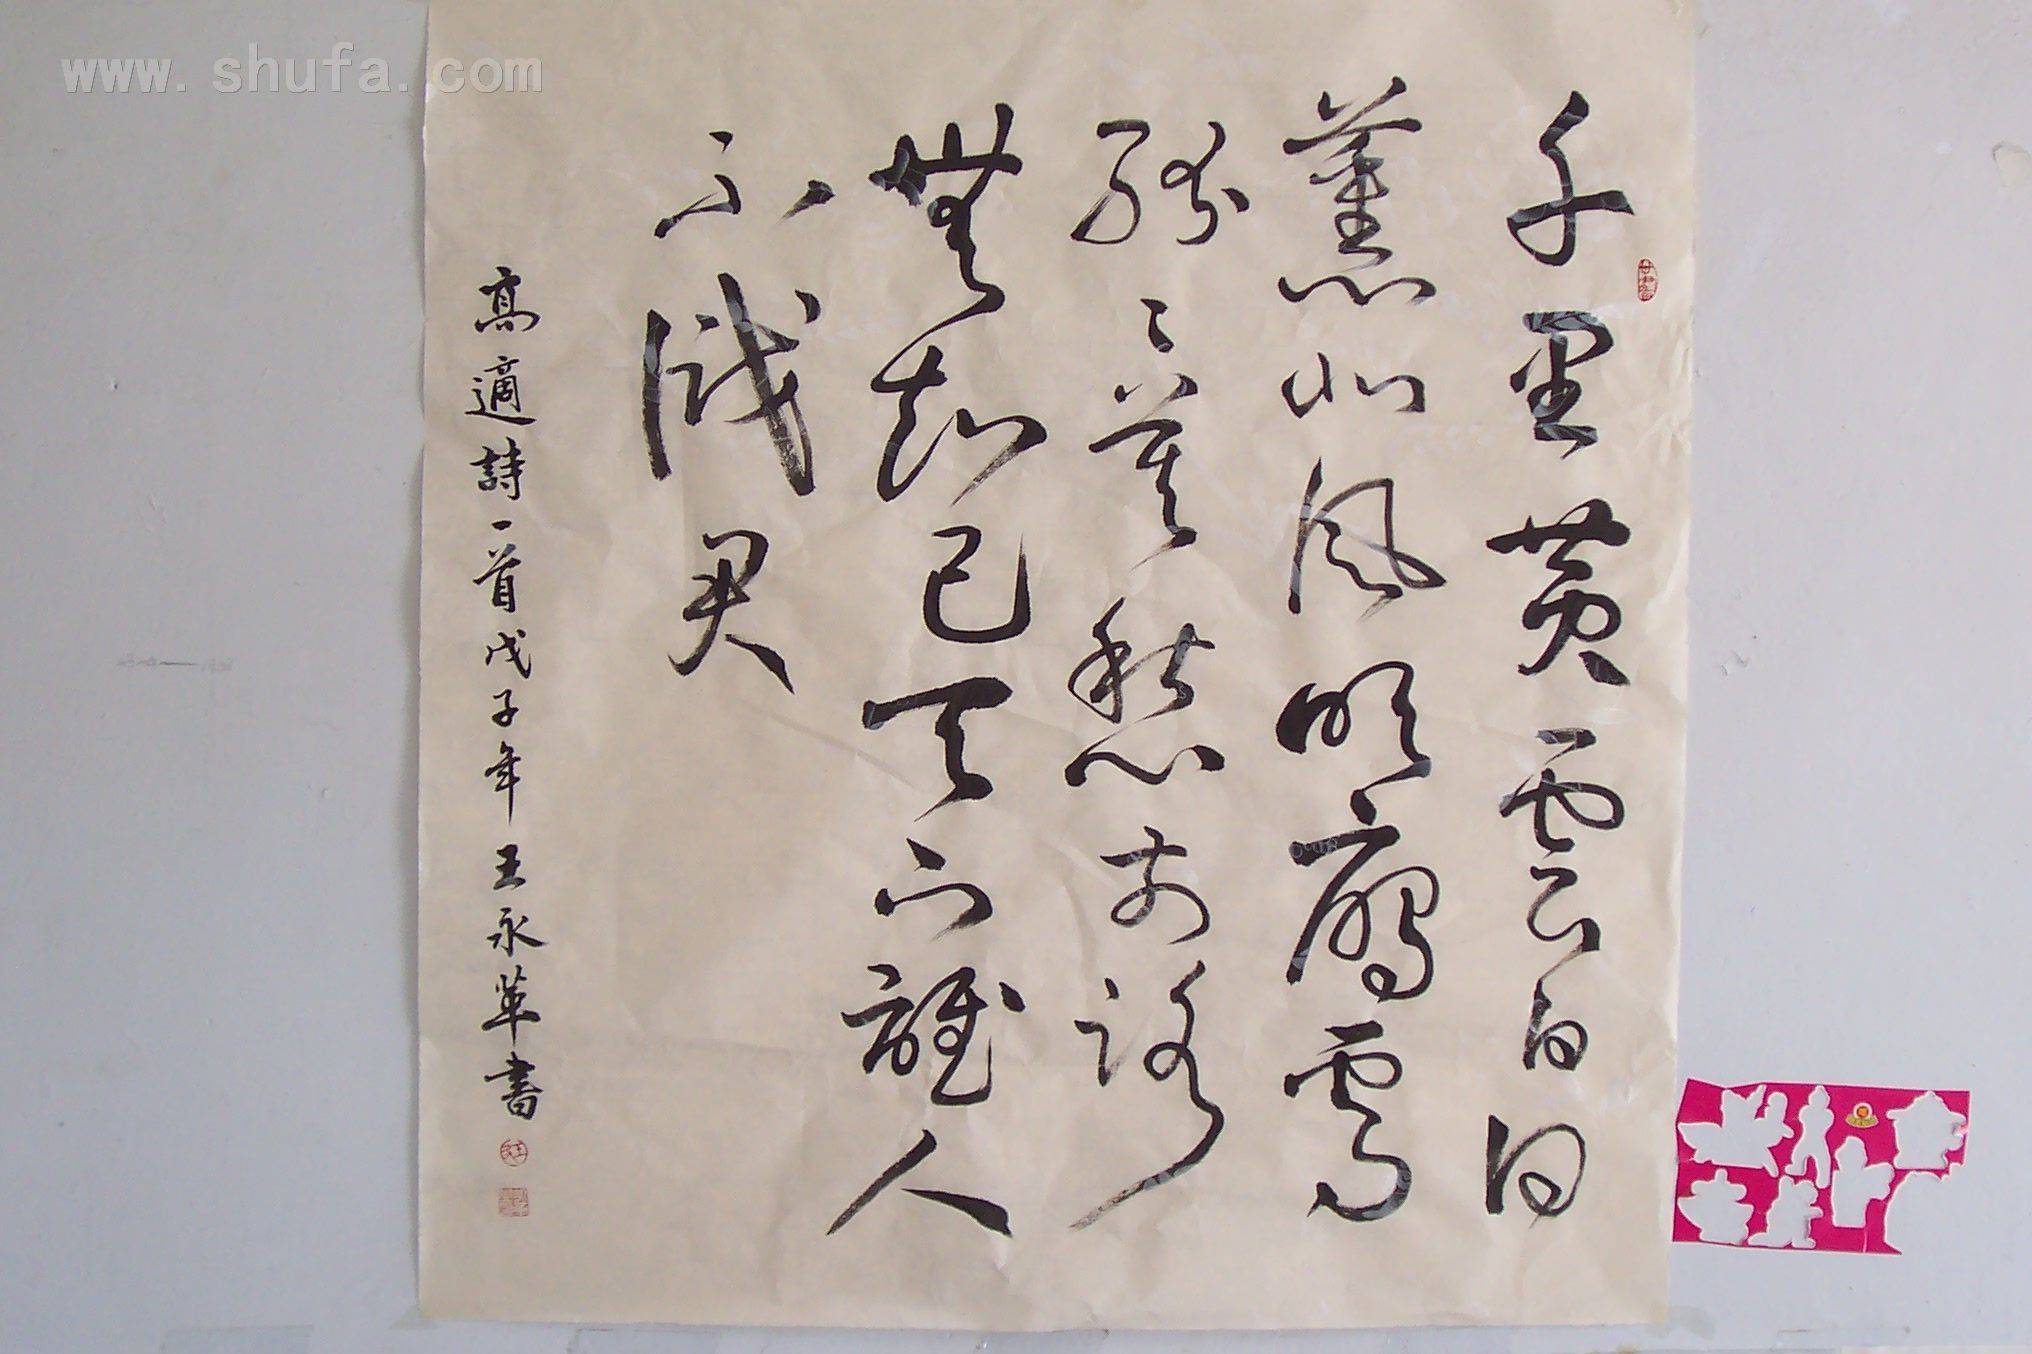 www.shufa.com
千里黄雲白日
薰北風吹鴈雪
紛〻莫愁前路
無知己天下誰人
不識君
高適詩一首戊子年王永革書